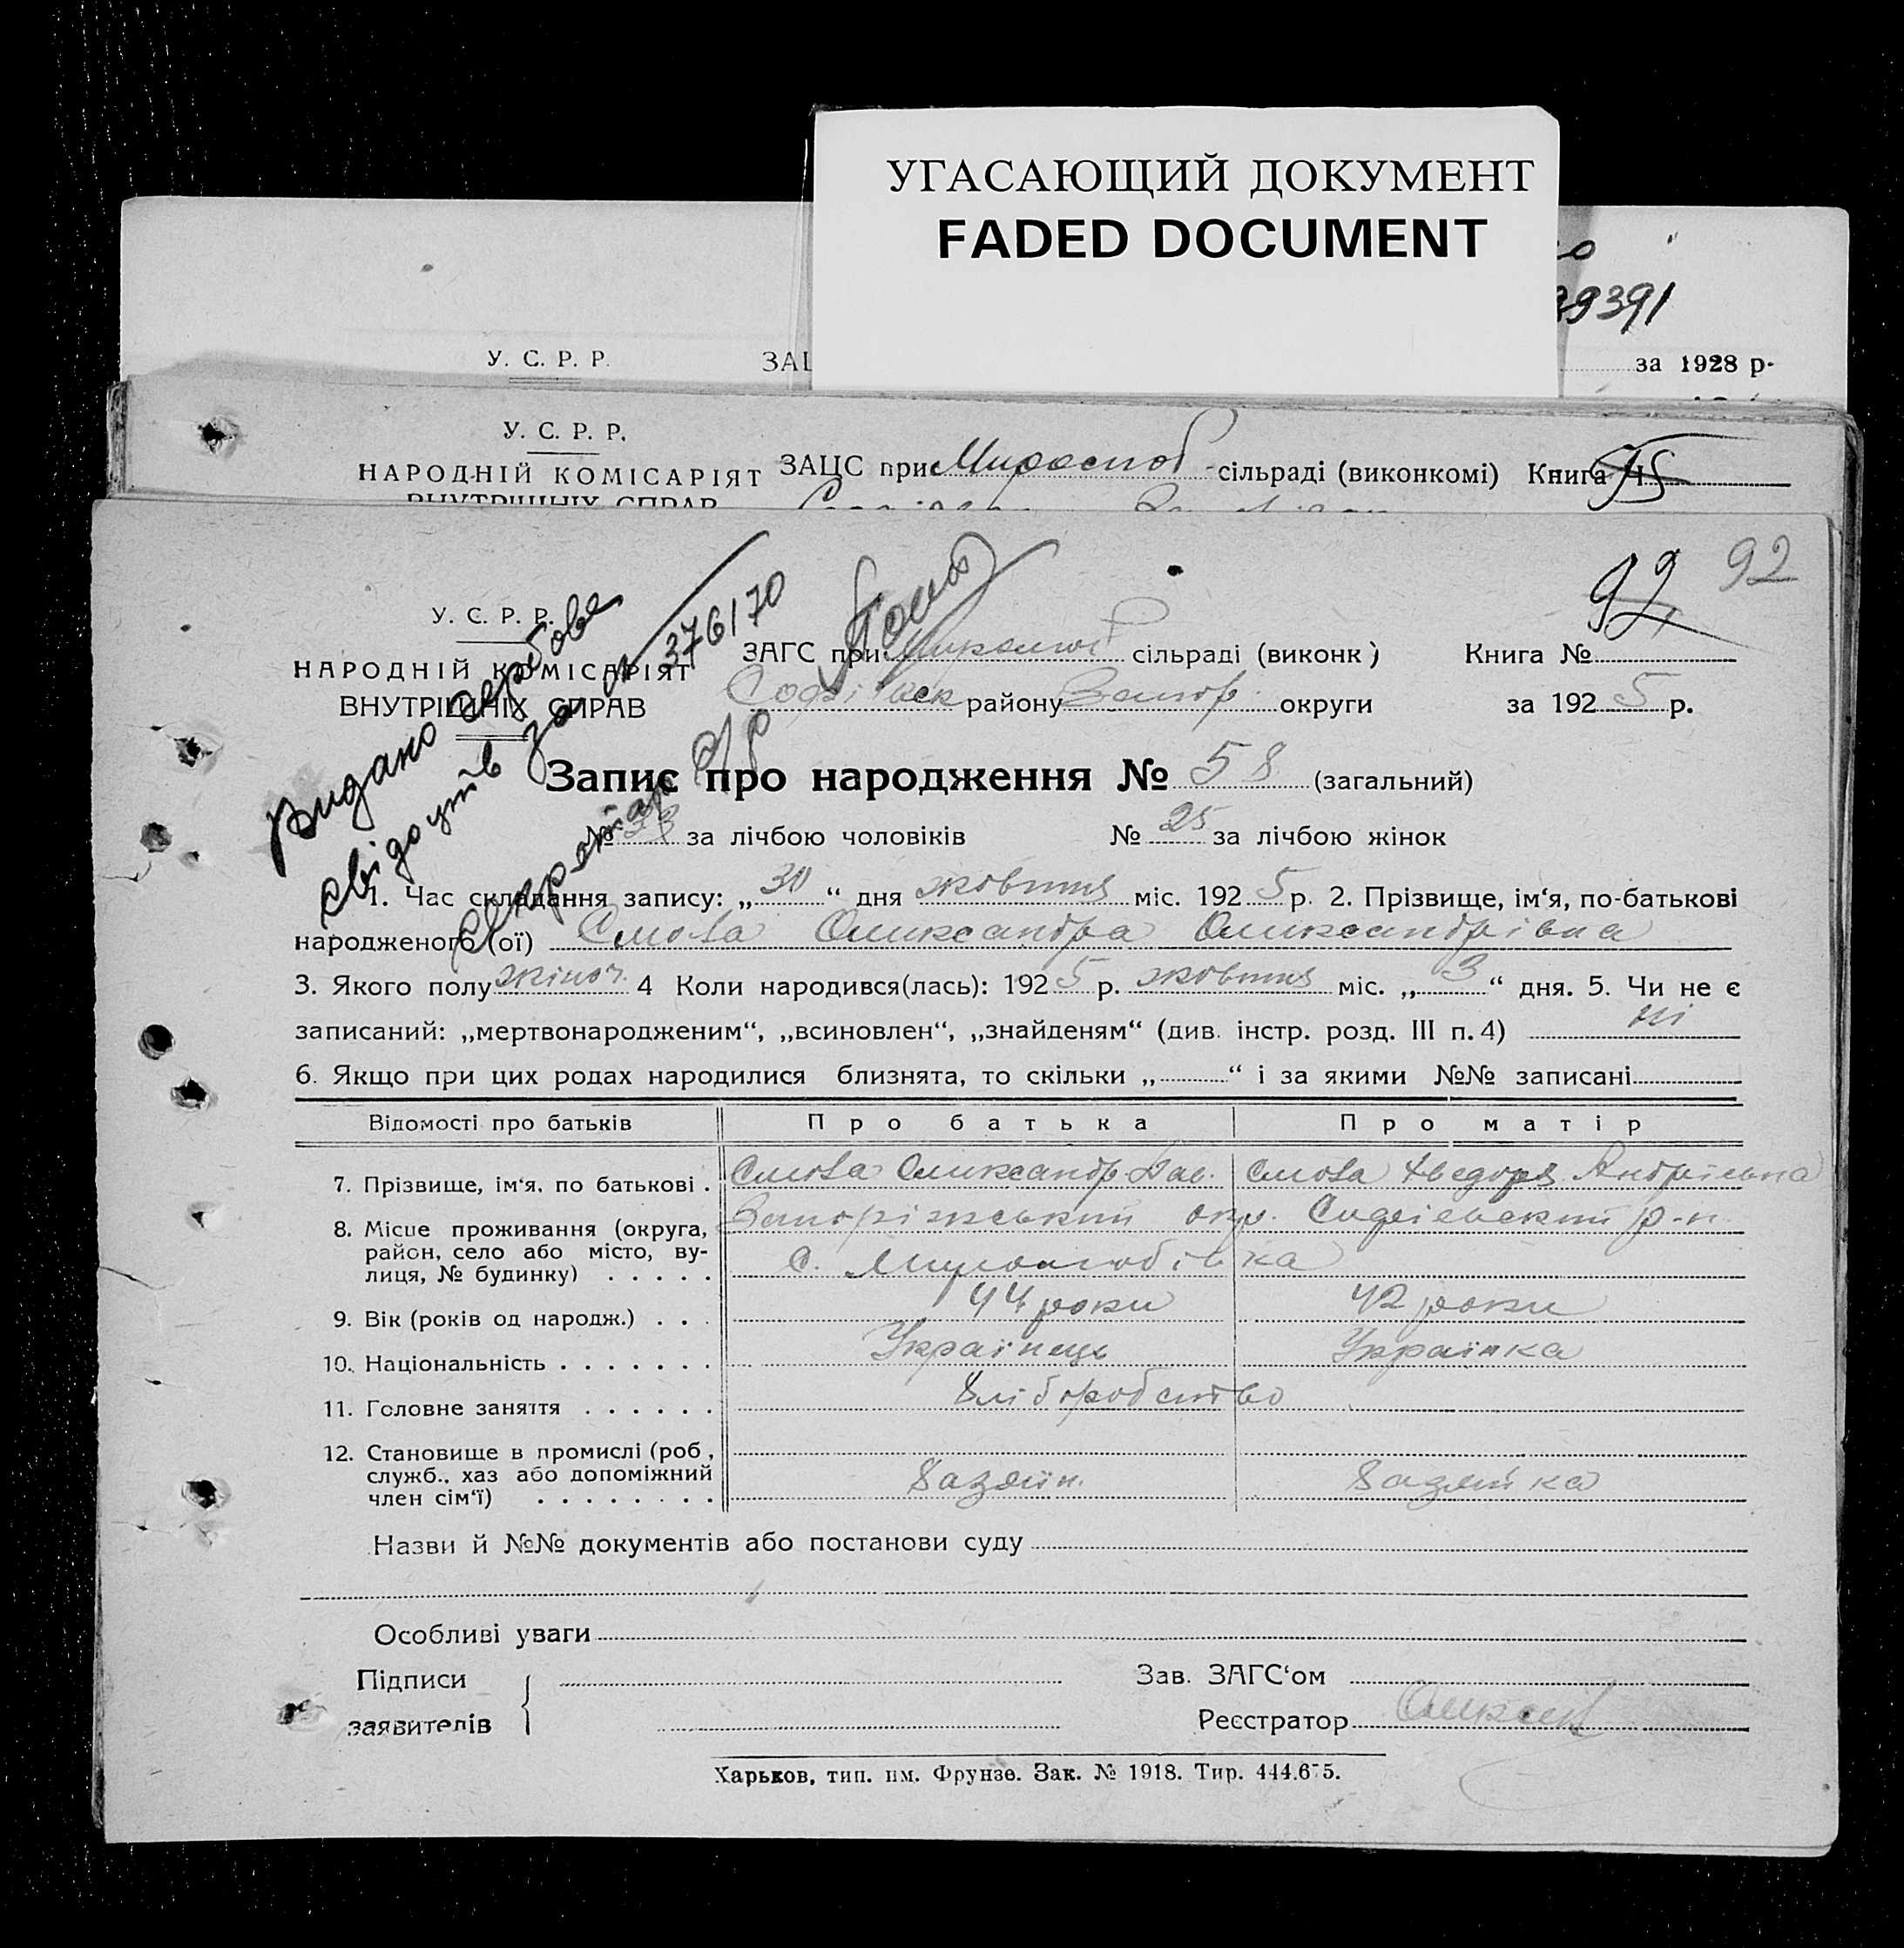 УГАСАЮЩИЙ ДОКУМЕНТ
FADED DOCUMENT
39391
У. С. Р. Р. ЗАЦ за 1928 р.
У. С. Р. Р.
НАРОДНІЙ КОМІСАРІЯТ ЗАЦС при сільраді (виконкомі) Книга
ВНУТРІШНІХ СПРАВ
92 92
Видано гербове
свідоцтв за № 376170
Секретар с/р
У. С. Р. Р.
НАРОДНІЙ КОМІСАРІЯТ ЗАГС при: Миролюб сільраді (виконк) Книга №
ВНУТРІШНІХ СПРАВ Софіївск району Запор. округи за 1925 р.
Запис про народження № 58 (загальний)
№ 33 за лічбою чоловіків № 25 за лічбою жінок
1. Час складання запису: „30“ дня жовтня міс. 1925 р. 2. Прізвище, ім‘я, по-батькові
народженого (ої) Смола Олександра Олександрівна
3. Якого полу жіноч. 4 Коли народився(лась): 1925 р. жовтня міс. „3“ дня. 5. Чи не є
записаний: „мертвонародженим“, „всиновлен“, „знайденям“ (див. інстр. розд. III п. 4) ні
6. Якщо при цих родах народилися близнята, то скільки „ “ і за якими №№ записані
Відомості про батьків Про батька Про матір
7. Прізвище, ім‘я, по батькові . Смола Олександр Смола Андріевна
8. Місце проживання (округа, Запоріжський окр. Софіевский р-н
район, село або місто, ву-
лиця, № будинку) . . . . . с. Миролюбівка
9. Вік (років од народж.) . . . 44 роки 42 роки
10. Національність . . . . . . . Українець Українка
11. Головне заняття . . . . . . Хліборобство
12. Становище в промислі (роб,
служб., хаз або допоміжний Хазяїн. Хазяйка
член сім‘ї) . . . . . . . .
Назви й №№ документів або постанови суду
Особливі уваги
Підписи Зав. ЗАГС‘ом
заявителів Реєстратор
Харьков, тип. им. Фрунзе. Зак. № 1918. Тир. 444.675.